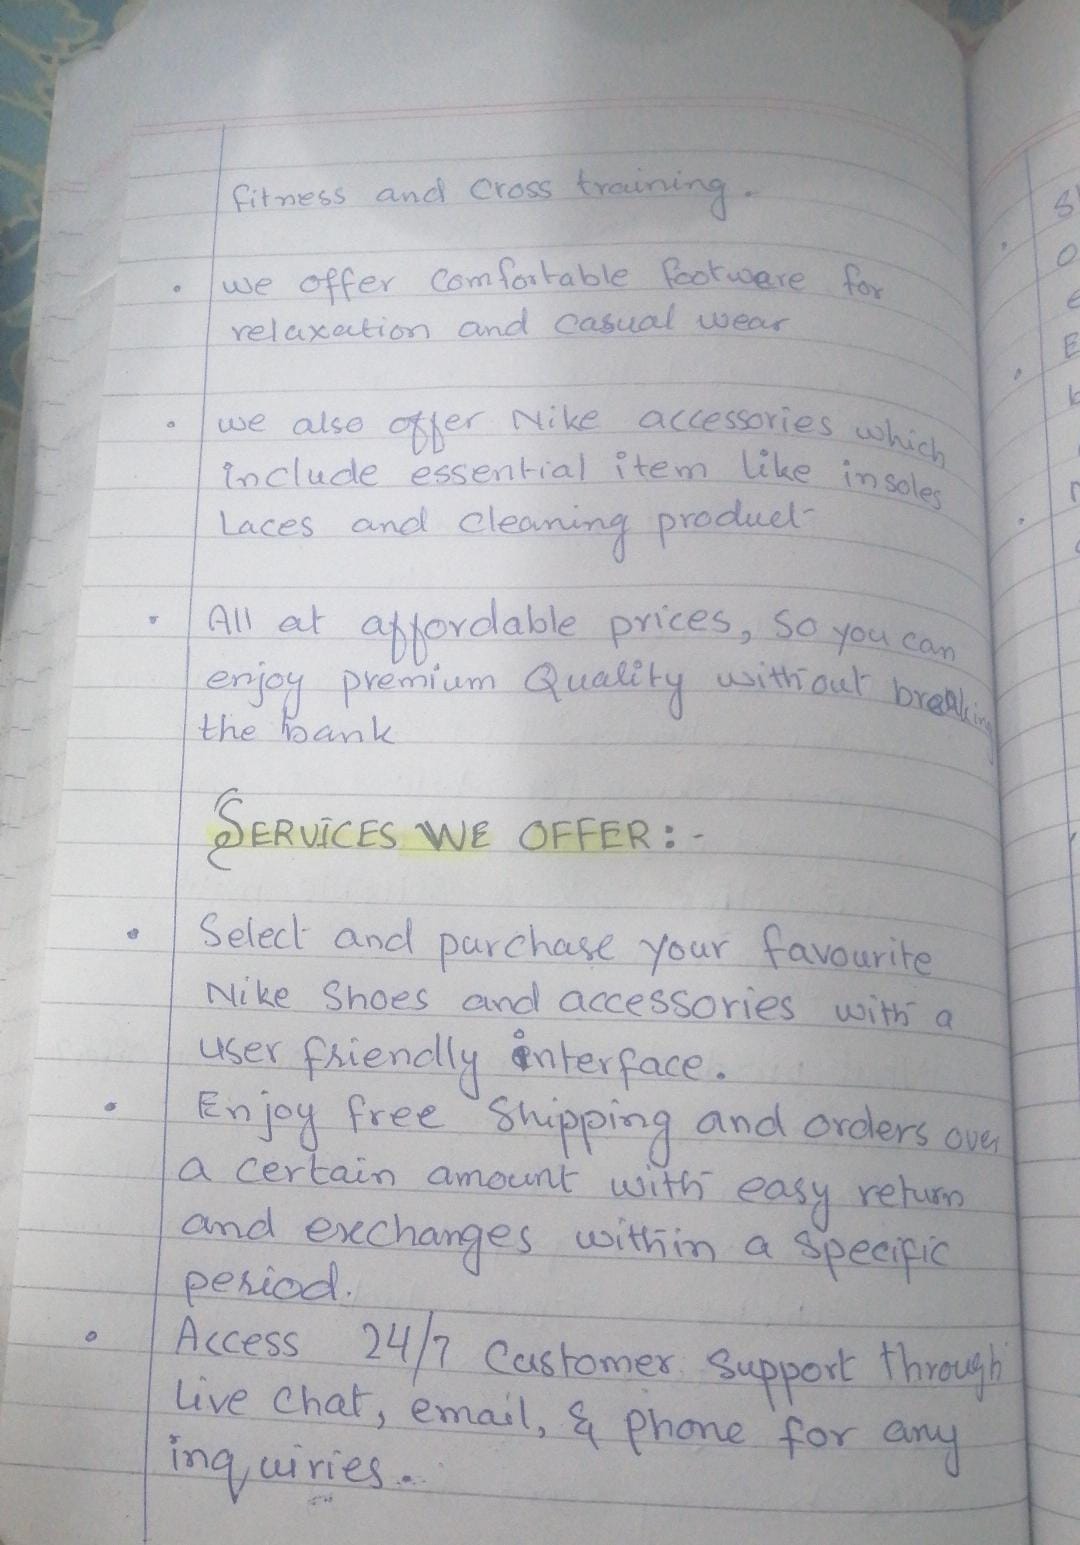 fitness and cross training.
• we offer comfortable footware for
relaxation and casual wear
• we also offer Nike accessories which
include essential item like insoles
Laces and cleaning product
• All at affordable prices, so you can
enjoy premium Quality without breaking
the bank
SERVICES WE OFFER:-
• Select and purchase your favourite
Nike Shoes and accessories with a
user friendly interface.
• Enjoy free Shipping and orders over
a certain amount with easy return
and exchanges within a specific
period.
• Access 24/7 Customer Support through
Live Chat, email, & phone for any
inquiries.